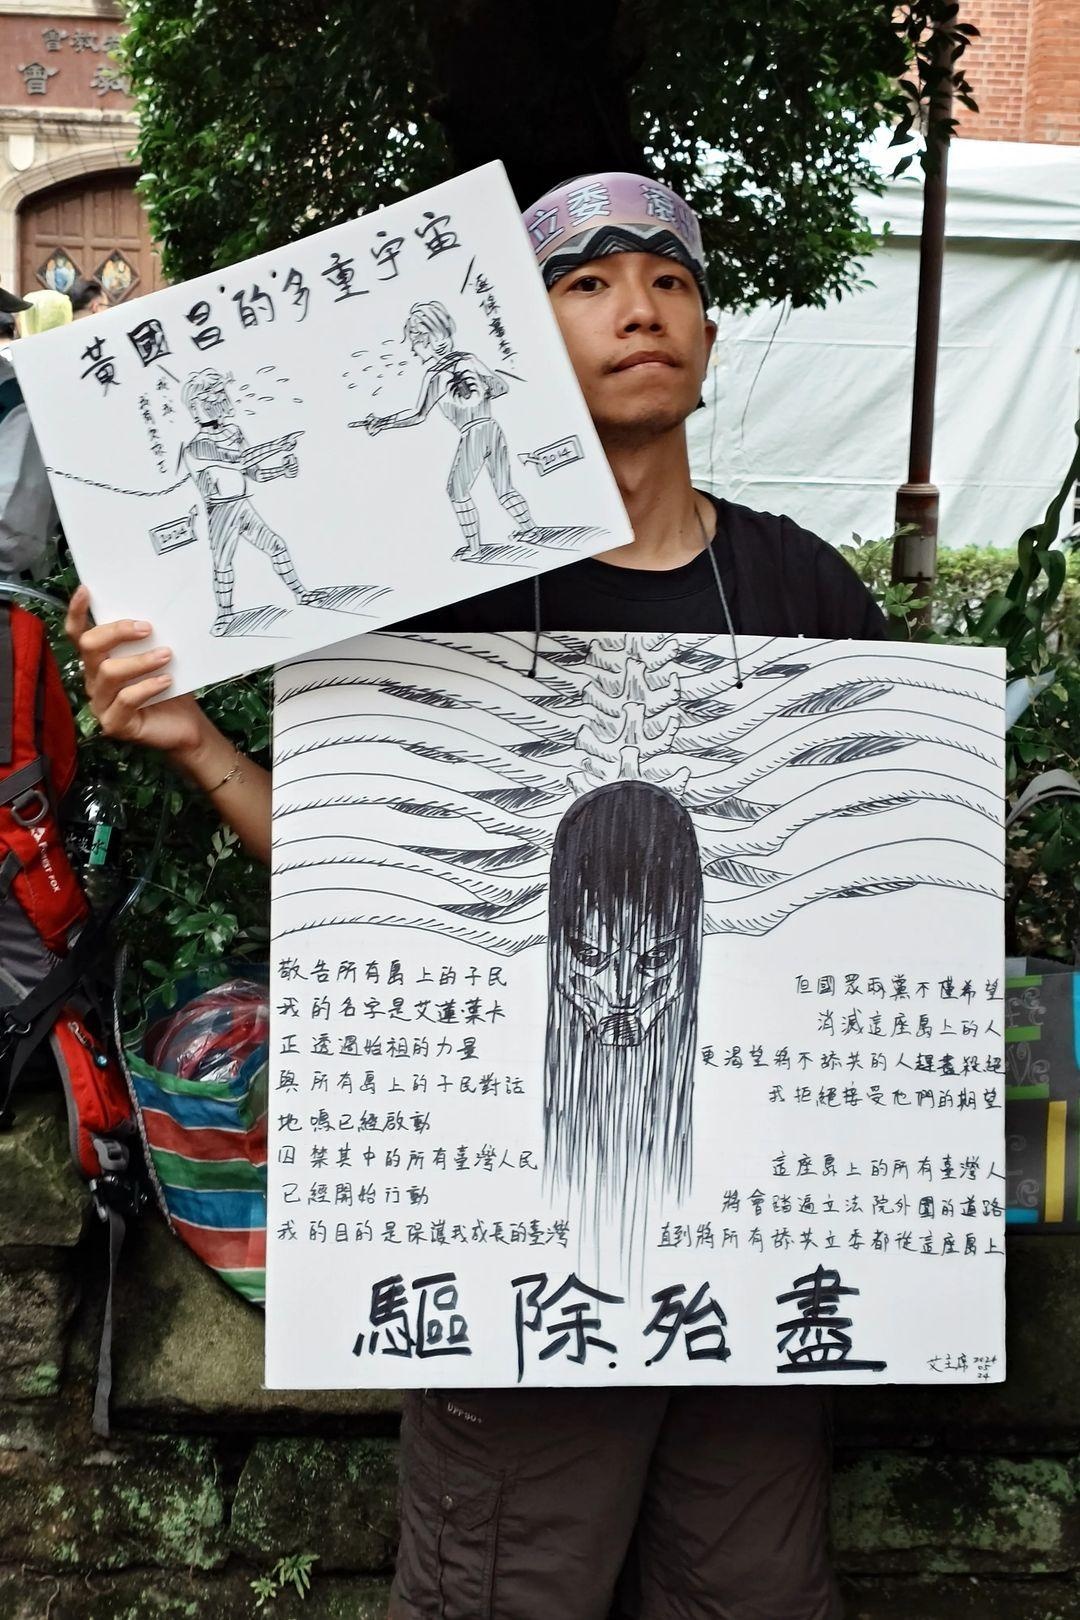 教會
立委
黃國昌的多重宇宙
我、我、
我有失憶症
2024
2014
還條審查
敬告所有島上的子民
我的名字是艾蓮·葉卡
正透過始祖的力量
與所有島上的子民對話
地鳴已經啟動
囚禁其中的所有臺灣人民
已經開始行動
我的目的是保護我成長的臺灣
但國眾兩黨不僅希望
消滅這座島上的人
更渴望將不舔共的人趕盡殺絕
我拒絕接受他們的期望
這座島上的所有臺灣人
將會踏過立法院外圍的道路
直到將所有舔共立委都從這座島上
驅除殆盡
艾主席 2024
05
24
FOREST FOX